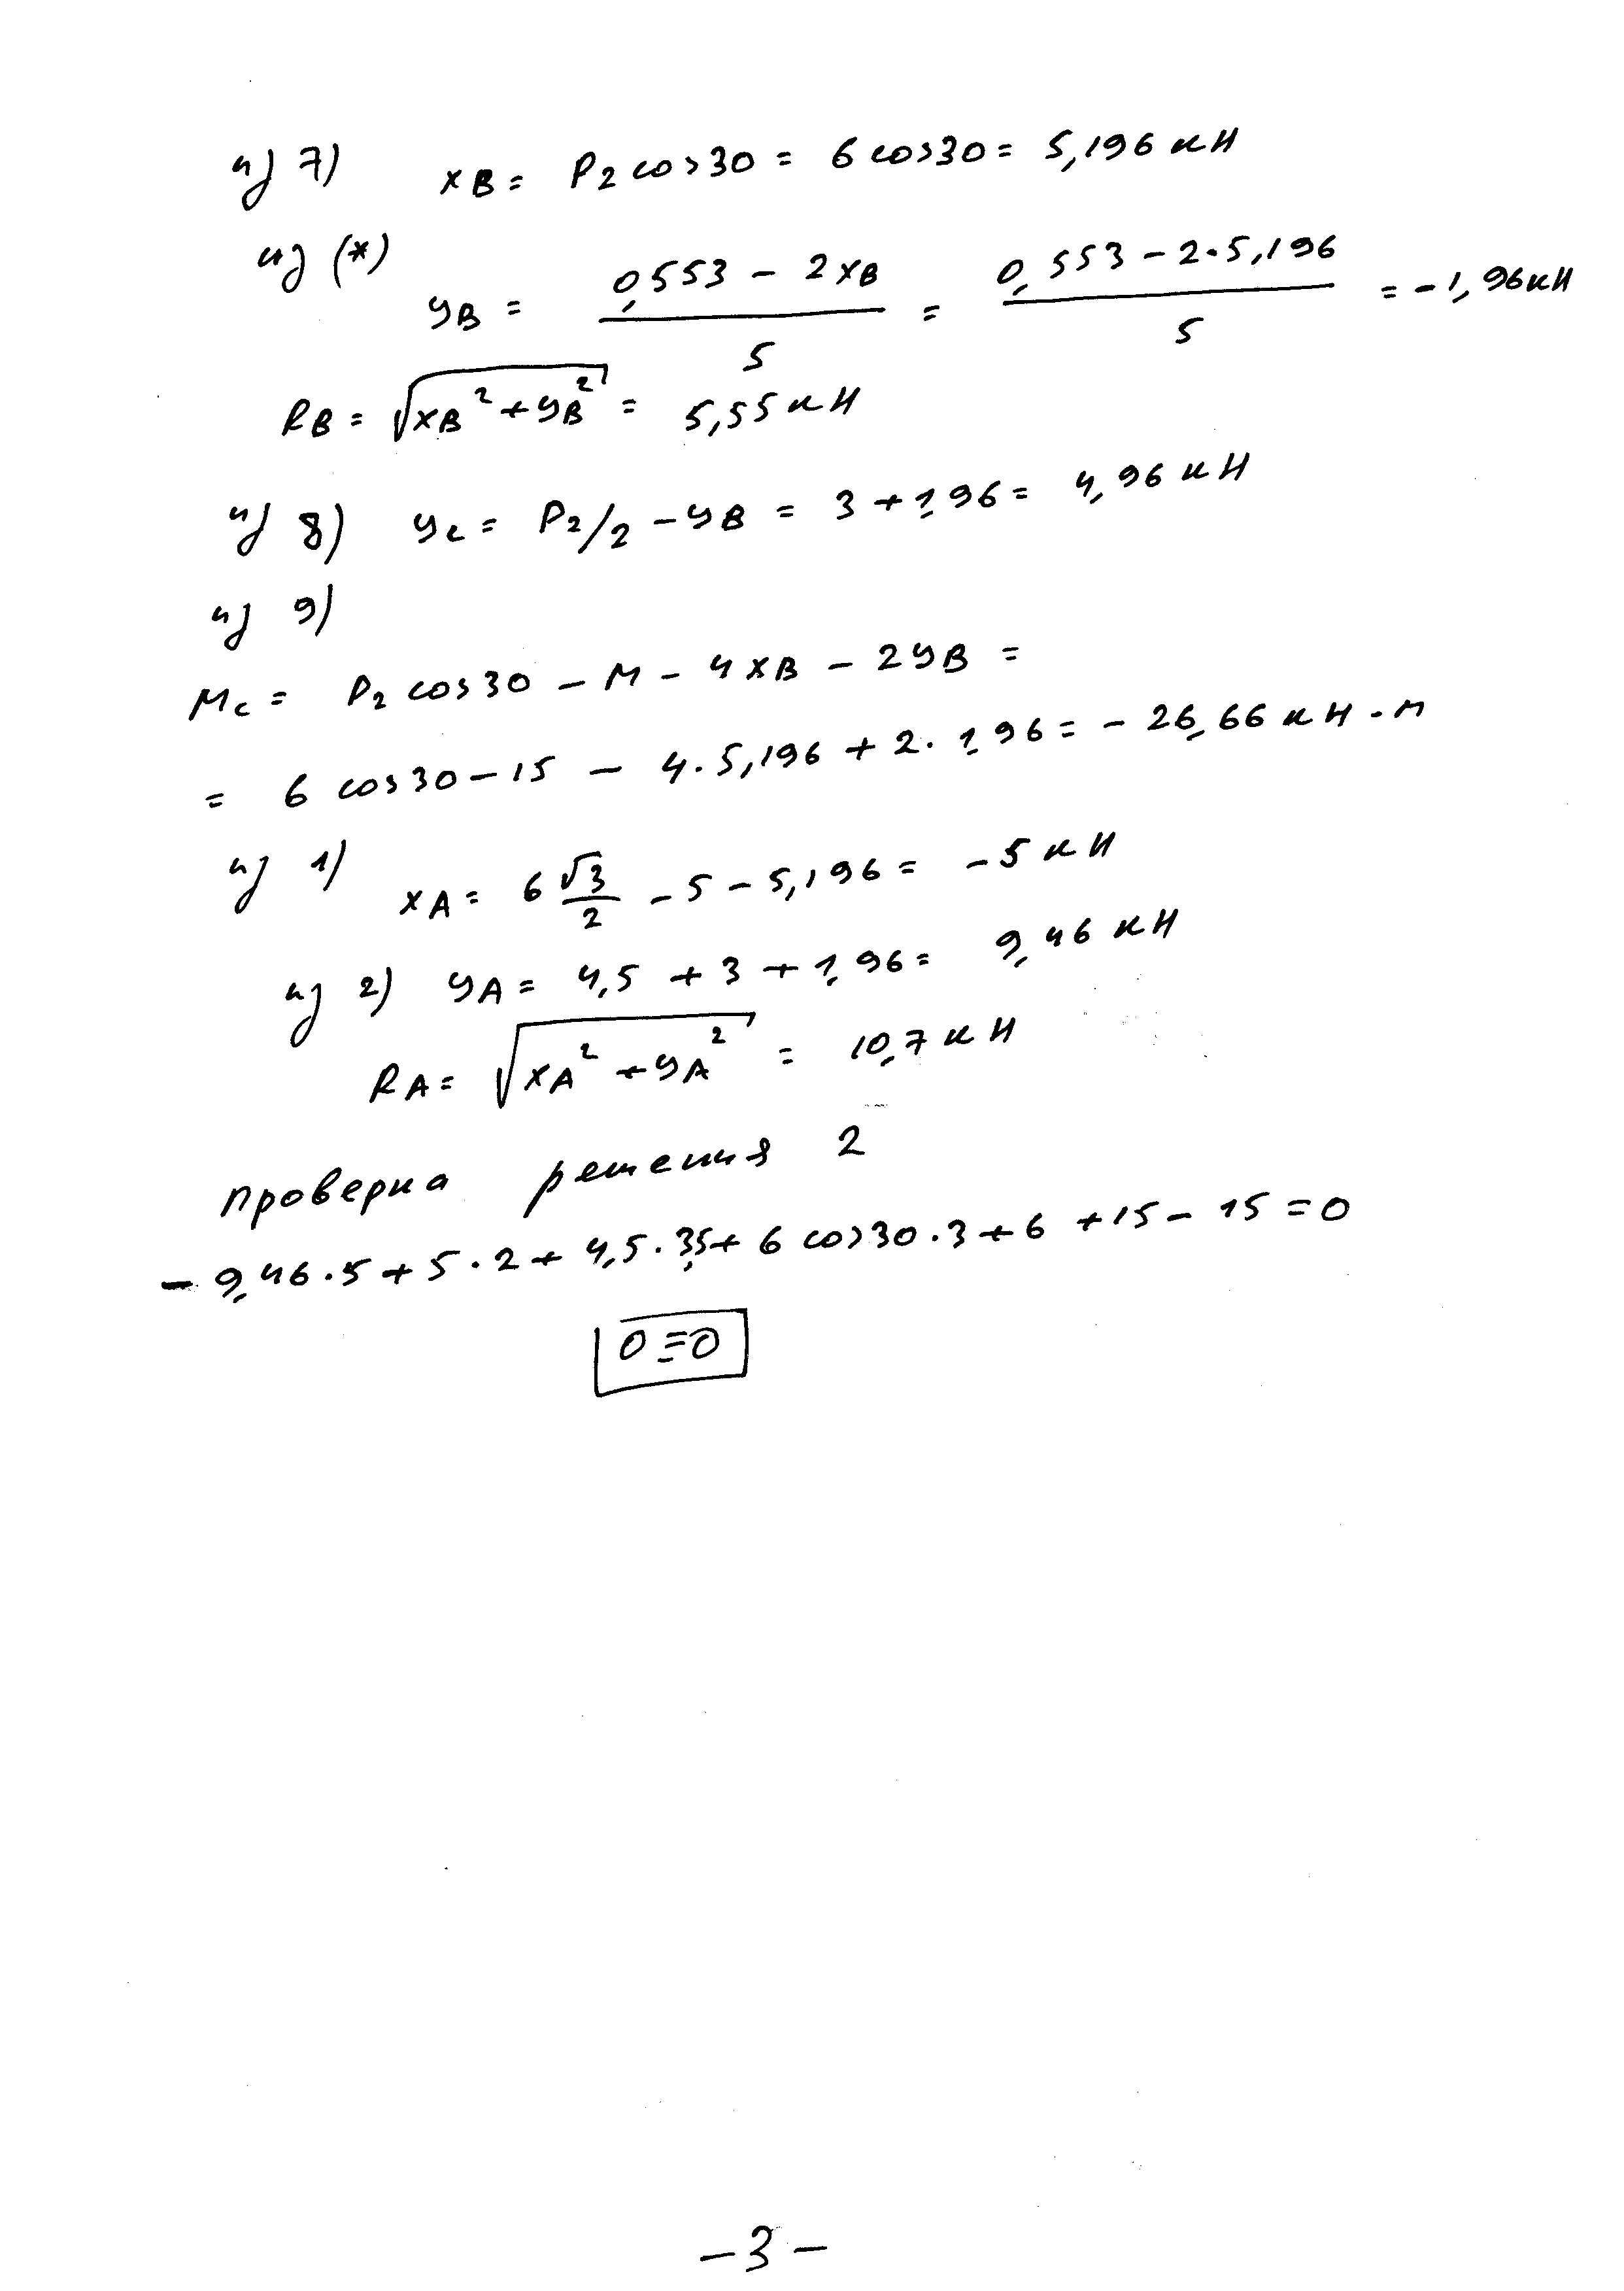 из 7) xB = P2 cos30 = 6 cos30 = 5,196 кН
из (*) yB = (0,553 - 2xB)/5 = (0,553 - 2·5,196)/5 = -1,96 кН
RB = √(xB² + yB²) = 5,55 кН
из 8) yc = P2/2 - yB = 3 + 1,96 = 4,96 кН
из 9)
Mc = P2 cos30 - M - 4xB - 2yB =
= 6 cos30 - 15 - 4·5,196 + 2·1,96 = -26,66 кН·м
из 1) xA = 6 √3/2 - 5 - 5,196 = -5 кН
из 2) yA = 4,5 + 3 + 1,96 = 9,46 кН
RA = √(xA² + yA²) = 10,7 кН
проверка решения 2
- 9,46·5 + 5·2 + 4,5·3,5 + 6 cos30·3 + 6 + 15 - 15 = 0
0 ≡ 0
-3-